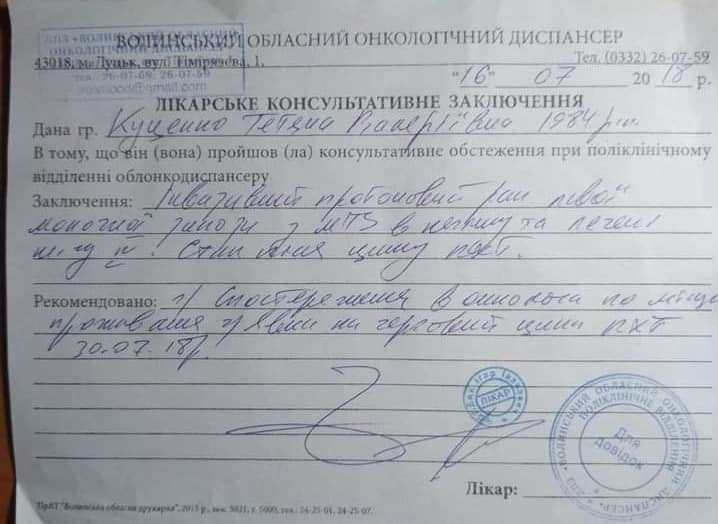 ДПЗ «ВОЛИНСЬКИЙ ОБЛАСНИЙ
ОНКОЛОГІЧНИЙ ДИСПАНСЕР»
тел. 26-07-69, 26-07-59
ВОЛИНСЬКИЙ ОБЛАСНИЙ ОНКОЛОГІЧНИЙ ДИСПАНСЕР
43018, м. Луцьк, вул. Тімірязєва, 1, Тел. (0332) 26-07-59
"16" 07 2018 р.
ЛІКАРСЬКЕ КОНСУЛЬТАТИВНЕ ЗАКЛЮЧЕННЯ
Дана гр. Куценко Тетяна Валеріївна 1984 р.н.
В тому, що він (вона) пройшов (ла) консультативне обстеження при поліклінічному
відділенні облонкодиспансеру
Заключення: Інвазивний протоковий рак лівої
молочної залози з МТЗ в печінку та легені
Стан після циклу ПХТ.
Рекомендовано: Спостереження в онколога по місцю
проживання явки на черговий цикл ПХТ
30.07.18р.
ЛІКАР
ВОЛИНСЬКИЙ ОБЛАСНИЙ ОНКОЛОГІЧНИЙ ДИСПАНСЕР
ПОЛІКЛІНІЧНЕ ВІДДІЛЕННЯ
Для
довідок
Лікар:
ПрАТ "Волинська обласна друкарня", 2015 р., зам. 5021, т. 5000, тел.: 24-25-01, 24-25-07.